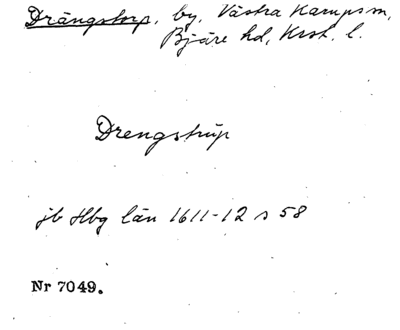 Drängstorp, by, Västra Karups sn,
Bjäre hd, Krst. l.
Drengstrup
jb Hbg län 1611-12 s 58
Nr 7049.